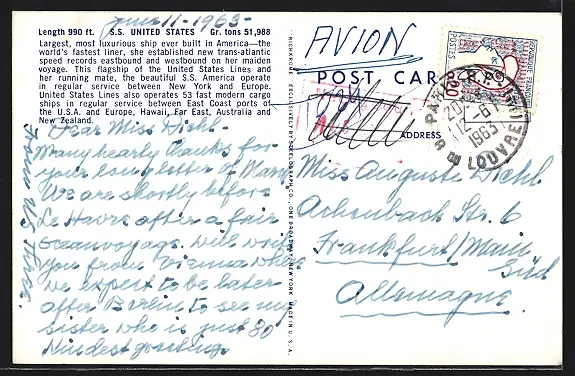 June 11 - 1963 -
Length 990 ft. S.S. UNITED STATES Gr. tons 51,988
Largest, most luxurious ship ever built in America—the
world's fastest liner, she established new trans-atlantic
speed records eastbound and westbound on her maiden
voyage. This flagship of the United States Lines and
her running mate, the beautiful S.S. America operate
in regular service between New York and Europe.
United States Lines also operates 53 fast modern cargo
ships in regular service between East Coast ports of
the U.S.A. and Europe, Hawaii, Far East, Australia and
New Zealand.
Dear Miss Diehl -
Many hearty thanks for
your long letter of
We are shortly before
Le Havre after a fair
ocean voyage. Will write
you from Vienna where
we expect to be later
after Berlin to see my
sister who is just 80
Kindest greetings
EXCLUSIVELY BY
CO., ONE BROADWAY, NEW YORK MADE IN U.S.A.
AVION
POST CARD
ADDRESS
POSTES
PARIS
12-6
1963
LOUVRE
Miss Auguste Diehl
Achenbach Str. 6
Frankfurt/Main
Süd
Allemagne.